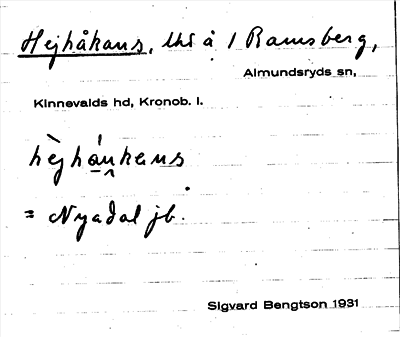 Hejhåkans, lht å 1 Ramsberg,
Almundsryds sn,
Kinnevalds hd, Kronob. l.
hèjhánkans
= Nyadal jb.
Sigvard Bengtson 1931